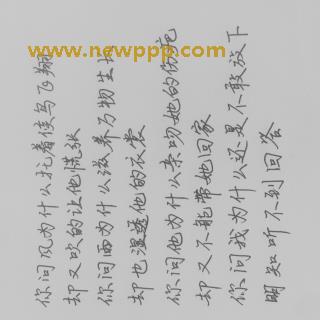 www.newppp.com
你问风为什么托着侯鸟飞翔
却又吹的让他慌张
你问雨为什么滋养万物生长
却也湿透他的衣裳
你问他为什么亲吻她的伤疤
却又不能带她回家
你问我为什么还是不敢放下
明知听不到回答